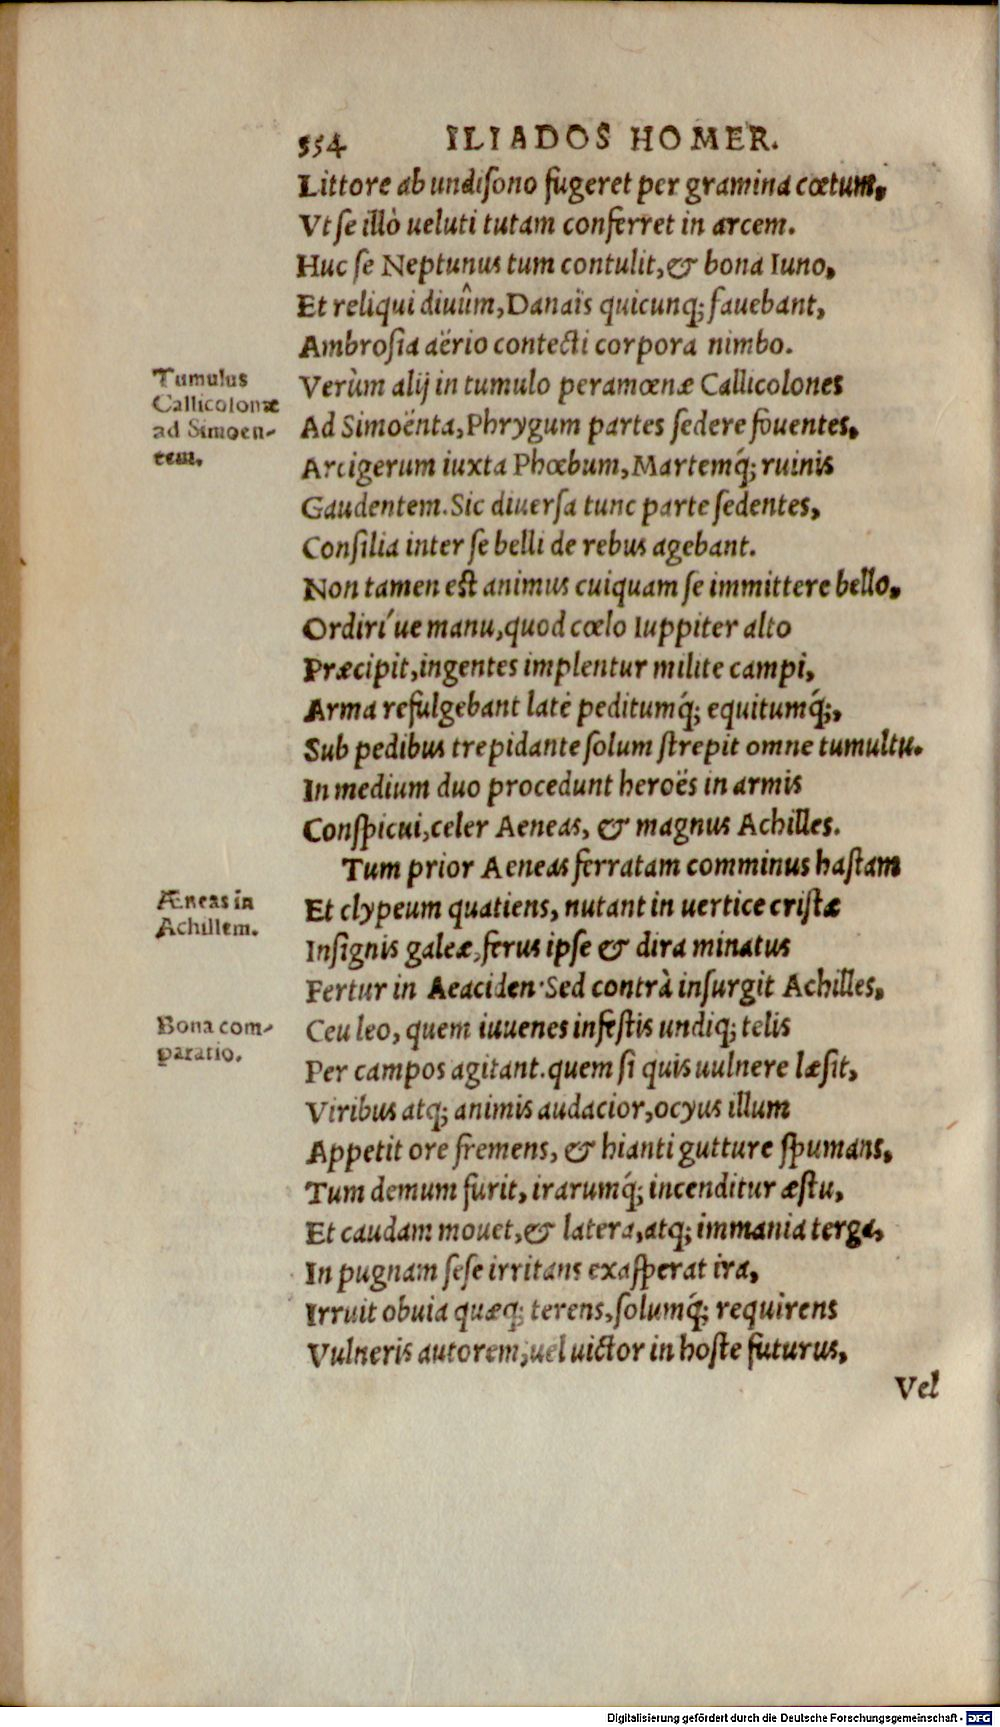 554 ILIADOS HOMER.
Littore ab undisono fugeret per gramina cœtum,
Vt se illò ueluti tutam conferret in arcem.
Huc se Neptunus tum contulit, & bona Iuno,
Et reliqui diuûm, Danaïs quicunq; fauebant,
Ambrosia aërio contecti corpora nimbo.
Tumulus
Callicolonæ
ad Simoen-
tem.
Verùm alij in tumulo peramœnæ Callicolones
Ad Simoënta, Phrygum partes sedere fouentes,
Arcigerum iuxta Phœbum, Martemq́; ruinis
Gaudentem. Sic diuersa tunc parte sedentes,
Consilia inter se belli de rebus agebant.
Non tamen est animus cuiquam se immittere bello,
Ordiri´ue manu, quod cœlo Iuppiter alto
Præcipit, ingentes implentur milite campi,
Arma refulgebant latè peditumq́; equitumq́;,
Sub pedibus trepidante solum strepit omne tumultu.
In medium duo procedunt heroës in armis
Conspicui, celer Aeneas, & magnus Achilles.
Tum prior Aeneas ferratam comminus hastam
Æneas in
Achillem.
Et clypeum quatiens, nutant in uertice cristæ
Insignis galeæ, ferus ipse & dira minatus
Fertur in Aeaciden. Sed contrà insurgit Achilles,
Bona com-
paratio.
Ceu leo, quem iuuenes infestis undiq; telis
Per campos agitant. quem si quis uulnere læsit,
Viribus atq; animis audacior, ocyus illum
Appetit ore fremens, & hianti gutture spumans,
Tum demum furit, irarumq́; incenditur æstu,
Et caudam mouet, & latera, atq; immania terga,
In pugnam sese irritans exasperat ira,
Irruit obuia quæq; terens, solumq́; requirens
Vulneris autorem, uel uictor in hoste futurus,
Vel
Digitalisierung gefördert durch die Deutsche Forschungsgemeinschaft - DFG